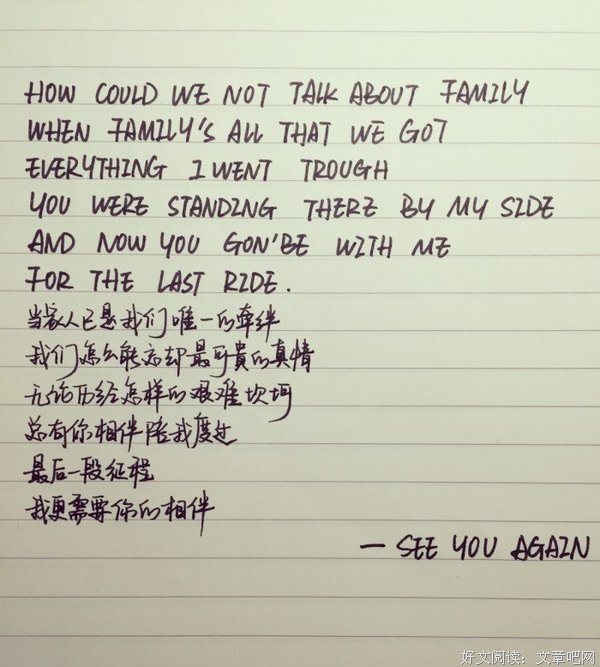 HOW COULD WE NOT TALK ABOUT FAMILY
WHEN FAMILY'S ALL THAT WE GOT
EVERYTHING I WENT TROUGH
YOU WERE STANDING THERE BY MY SIDE
AND NOW YOU GON'BE WITH ME
FOR THE LAST RIDE.
当家人已是我们唯一的牵绊
我们怎么能忘却最可貴的真情
无论历经怎样的艰难坎坷
总有你相伴陪我度过
最后一段征程
我更需要你的相伴
— SEE YOU AGAIN
好文阅读：文章吧网